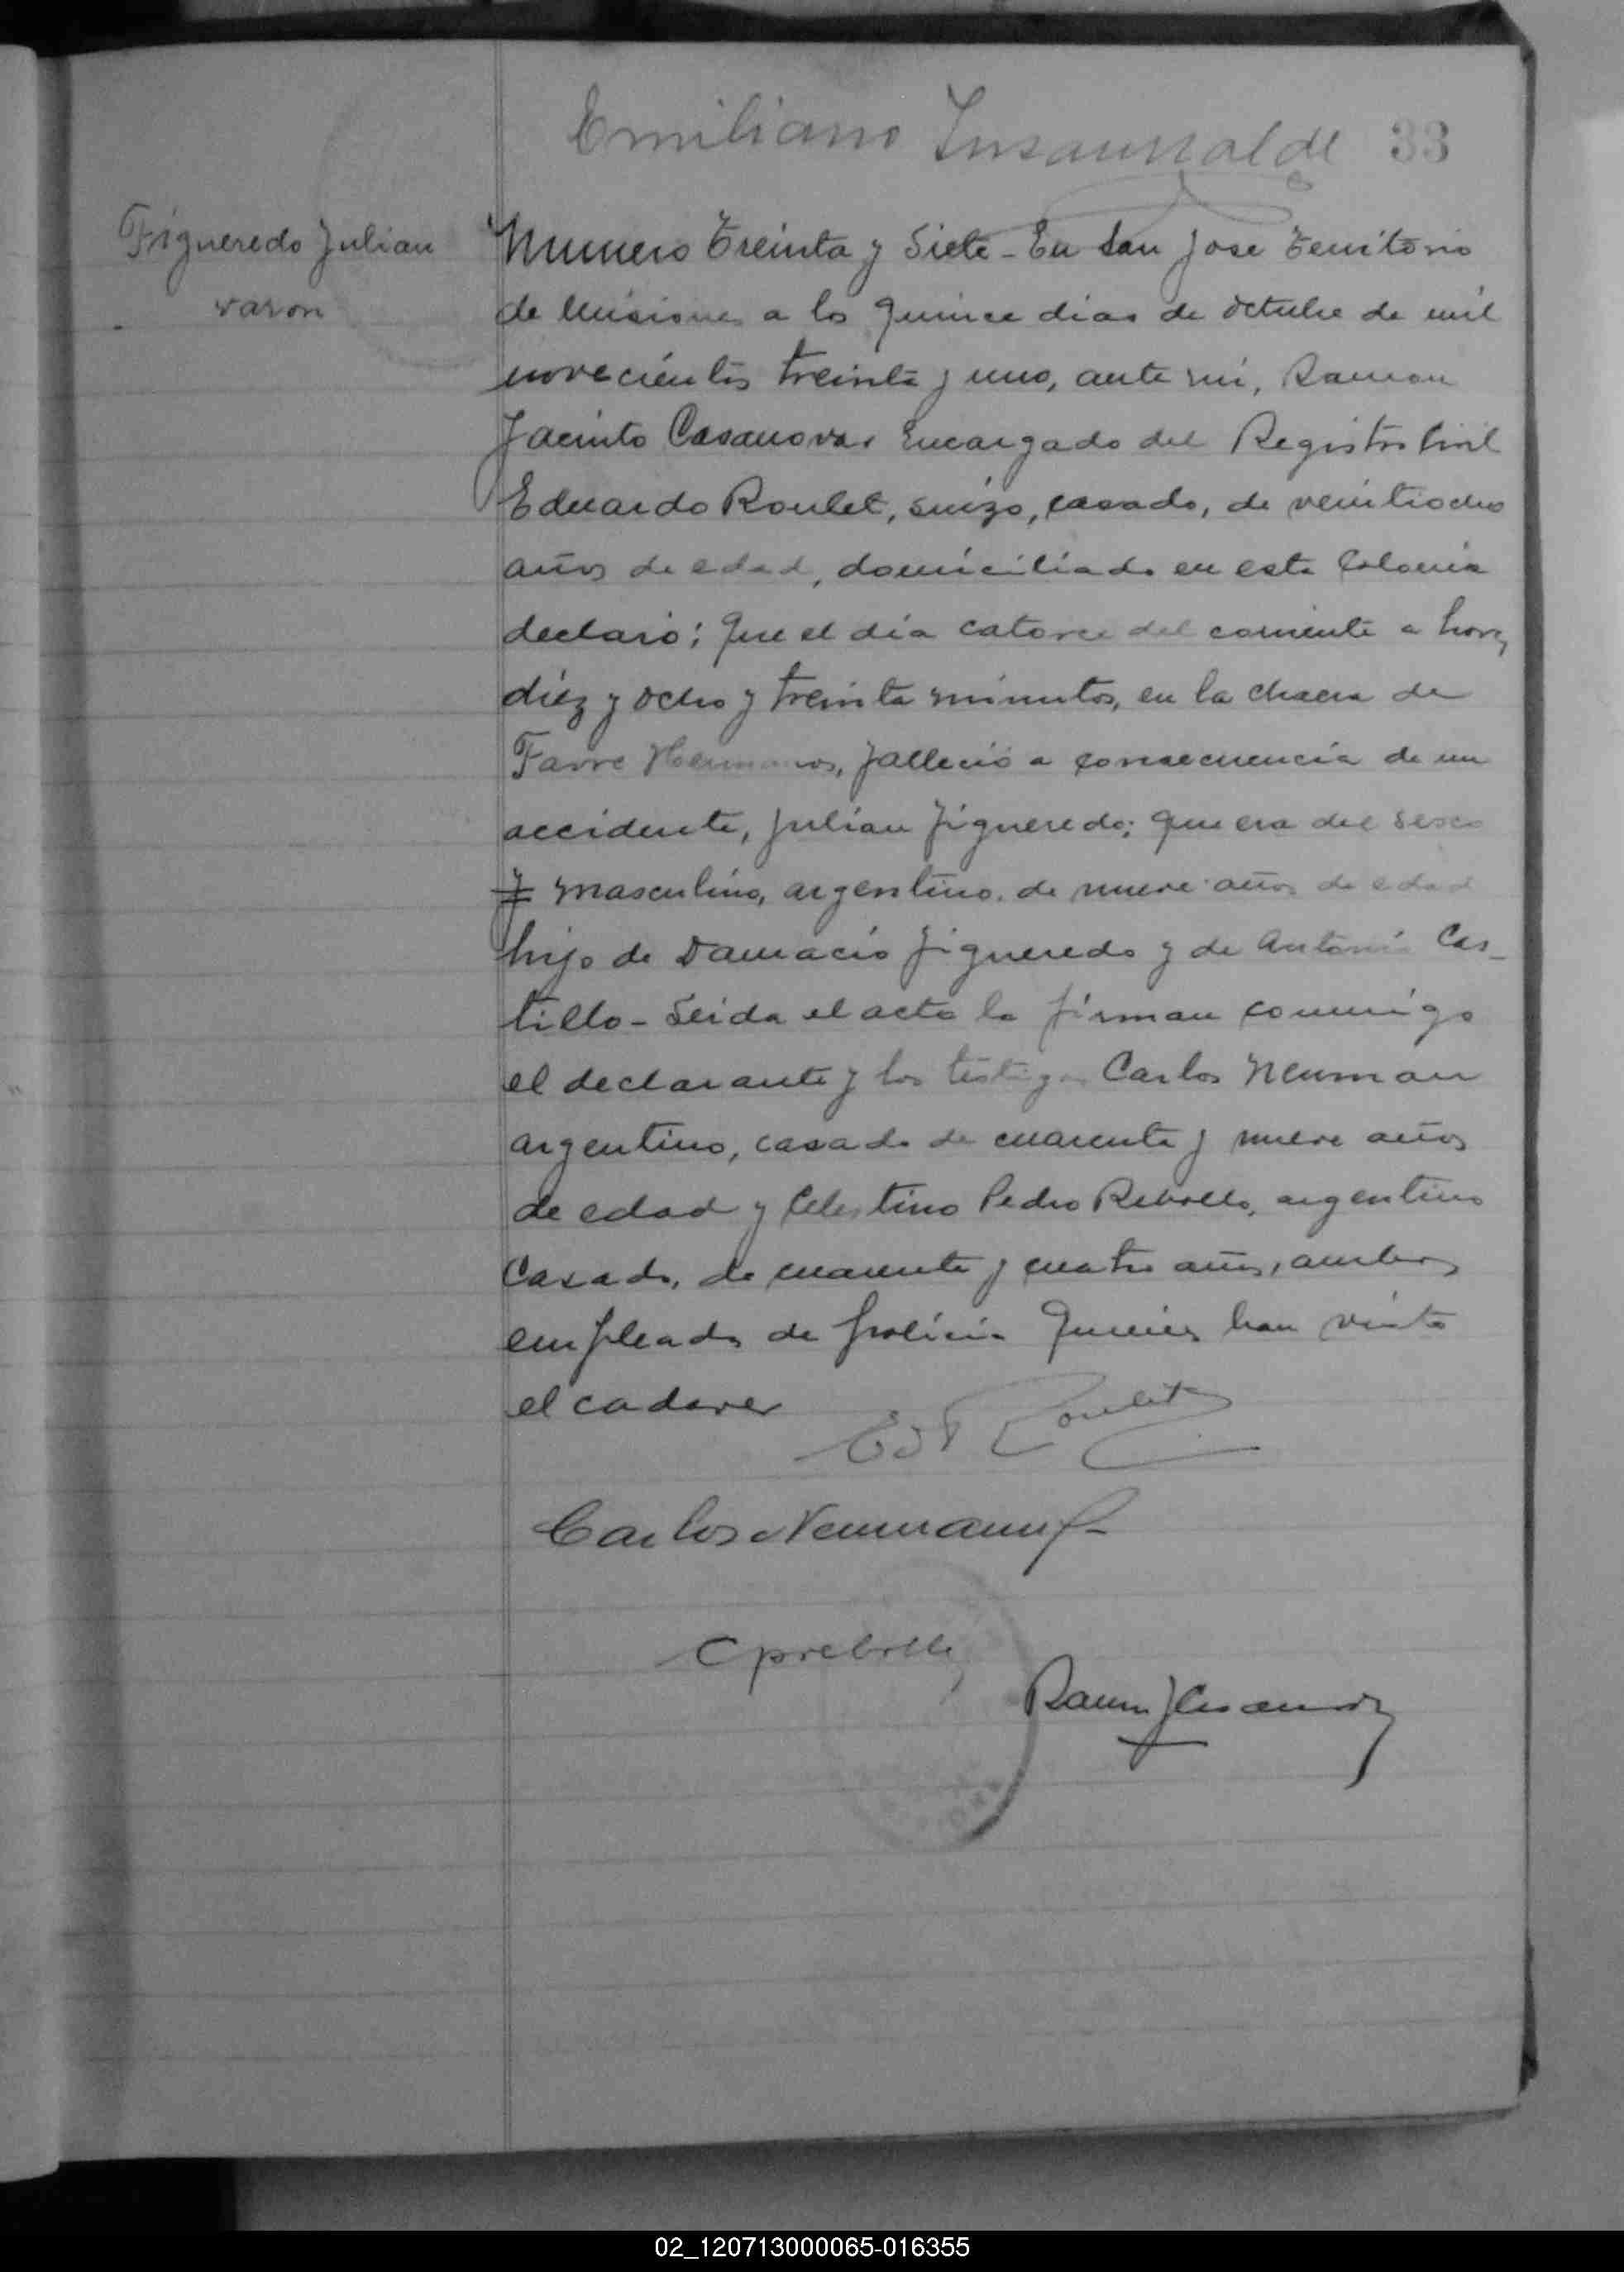 Emiliano Insaurralde 33
Figueredo Julian
varon
Numero Treinta y Siete - En San Jose Territorio
de Misiones a los quince dias de octubre de mil
novecientos treinta y uno, ante mi, Ramon
Jacinto Casanovas Encargado del Registro Civil
Eduardo Roulet, suizo, casado, de veintiocho
años de edad, domiciliado en esta Colonia
declaró; que el día catorce del corriente a horas
diez y ocho y treinta minutos, en la chacra de
Favre Hermanos, falleció a consecuencia de un
accidente, Julian Figueredo; que era del sexo
y masculino, argentino, de nueve años de edad
hijo de Damacio Figueredo y de Antonia Cas-
tillo - Leida el acta la firman conmigo
el declarante y los testigos Carlos Neuman
argentino, casado de cuarenta y nueve años
de edad y Celestino Pedro Rebollo, argentino
Casado, de cuarenta y cuatro años, ambos
empleados de policia quienes han visto
el cadaver
Ed Roulet
Carlos Neumann
C P Rebollo
Ramon J Casanovas
02_120713000065-016355